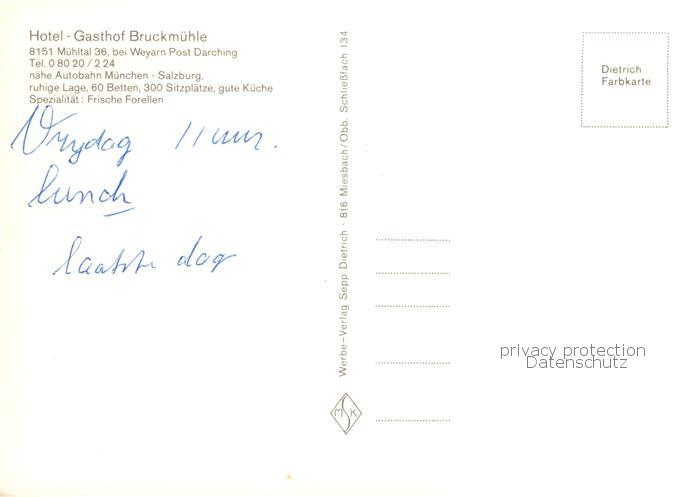 Hotel - Gasthof Bruckmühle
8151 Mühltal 36, bei Weyarn Post Darching
Tel. 0 80 20 / 2 24
nähe Autobahn München - Salzburg,
ruhige Lage, 60 Betten, 300 Sitzplätze, gute Küche
Spezialität: Frische Forellen
Vrydag 11 uur.
lunch
laatste dag
Werbe-Verlag Sepp Dietrich · 816 Miesbach/Obb. Schließfach 134
MSK
Dietrich
Farbkarte
privacy protection
Datenschutz